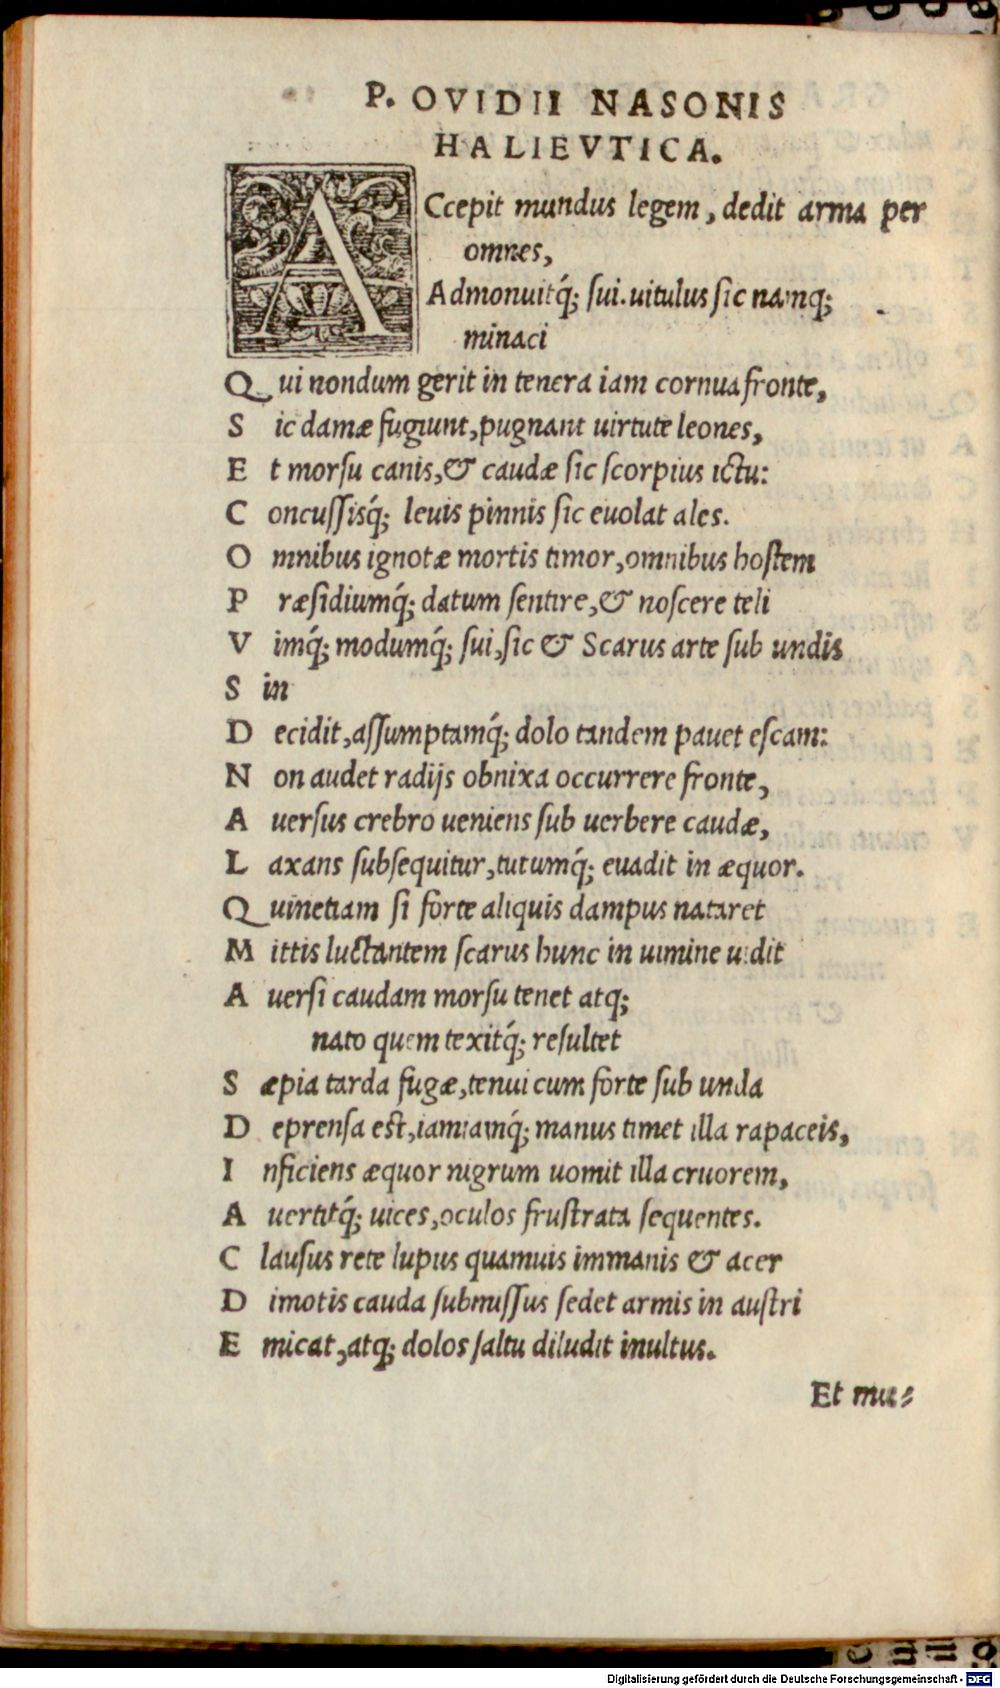 P. OVIDII NASONIS
HALIEVTICA.
ACcepit mundus legem, dedit arma per
omnes,
Admonuitq́; ſui. uitulus ſic namq;
minaci
Qui nondum gerit in tenera iam cornua fronte,
Sic damæ fugiunt, pugnant uirtute leones,
Et morſu canis, & caudæ ſic ſcorpius ictu:
Concuſſisq́; leuis pinnis ſic euolat ales.
Omnibus ignotæ mortis timor, omnibus hoſtem
Præſidiumq́; datum ſentire, & noſcere teli
Vimq́; modumq́; ſui, ſic & Scarus arte ſub undis
Sin
Decidit, aſſumptamq́; dolo tandem pauet eſcam:
Non audet radijs obnixa occurrere fronte,
Auerſus crebro ueniens ſub uerbere caudæ,
Laxans ſubſequitur, tutumq́; euadit in æquor.
Quinetiam ſi forte aliquis dampus nataret
Mittis luctantem ſcarus hunc in uimine uidit
Auerſi caudam morſu tenet atq;
nato quem texitq́; reſultet
Sæpia tarda fugæ, tenui cum forte ſub unda
Deprenſa eſt, iamiamq́; manus timet illa rapaceis,
Inficiens æquor nigrum uomit illa cruorem,
Auertitq́; uices, oculos fruſtrata ſequentes.
Clauſus rete lupus quamuis immanis & acer
Dimotis cauda ſubmiſſus ſedet armis in auſtri
Emicat, atq; dolos ſaltu diludit inultus.
Et mu⸗
Digitalisierung gefördert durch die Deutsche Forschungsgemeinschaft - DFG